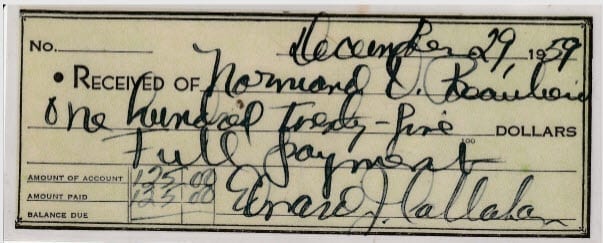 No. December 29, 1959
• RECEIVED OF Normand O. Beaulieu
One hundred twenty-five 100 DOLLARS
Full payment
AMOUNT OF ACCOUNT 125 00
AMOUNT PAID 125 00
BALANCE DUE
Edward J. Callahan